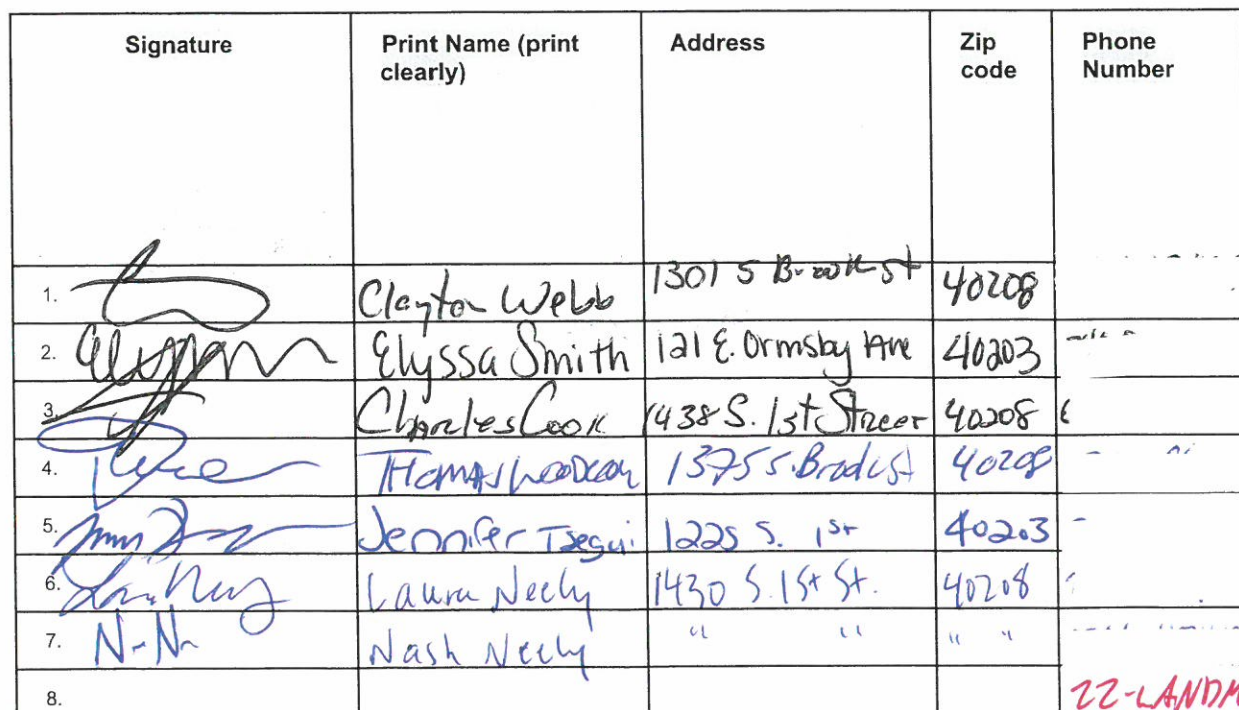 Signature Print Name (print clearly) Address Zip code Phone Number
1. Clayton Webb 1301 S Brook St 40208
2. Elyssa Smith 121 E. Ormsby Ave 40203
3. Charles Cook 1438 S. 1st Street 40208
4. Thomas 1375 S. 40208
5. Jennifer Tsegui 1225 S. 1st 40203
6. Laura Neely 1430 S. 1st St. 40208
7. N-N- Nash Neely " " " "
8. 22-LANDM